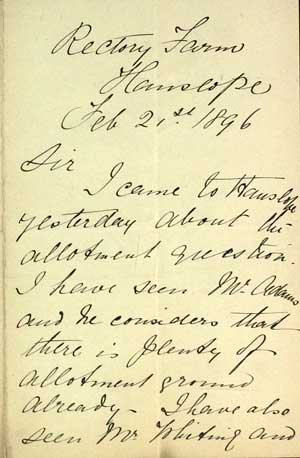 Rectory Farm
Hanslope
Feb 21st 1896
Sir
I came to Hanslope
yesterday about the
allotment question.
I have seen Mr Adams
and he considers that
there is plenty of
allotment ground
already - I have also
seen Mr Whiting and